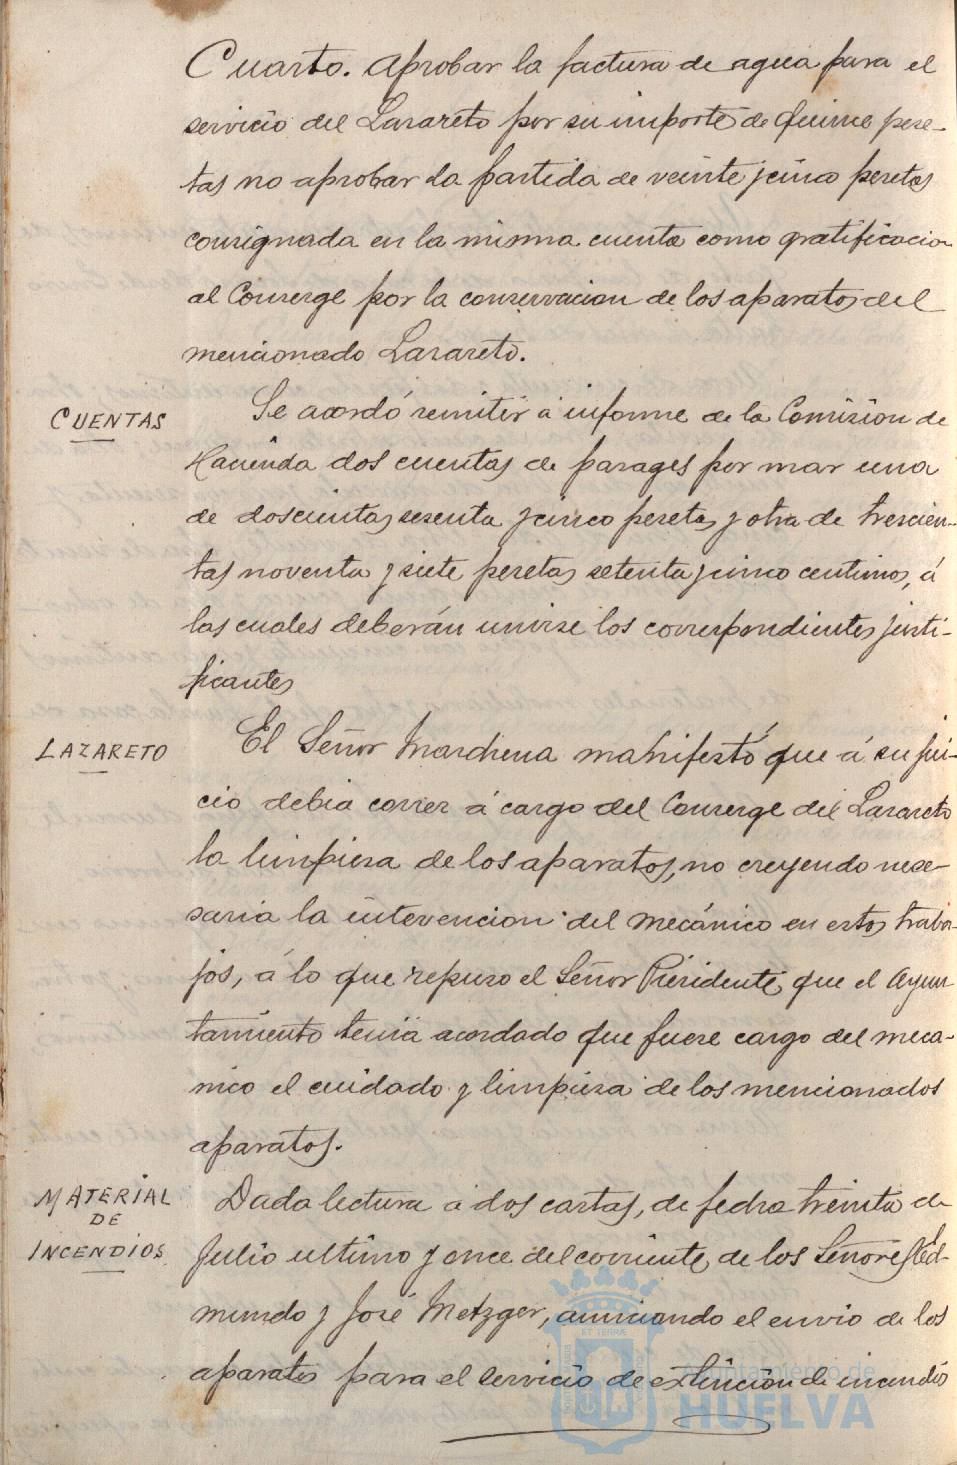 Cuarto. Aprobar la factura de agua para el
servicio del Lazareto por su importe de quince pese-
tas no aprobar la partida de veinte y cinco pesetas
consignada en la misma cuenta como gratificacion
al Conserge por la conservacion de los aparatos del
mencionado Lazareto.
CUENTAS
Se acordó remitir á informe de la Comision de
Hacienda dos cuentas de parages por mar una
de doscientas sesenta y cinco pesetas y otra de trescien-
tas noventa y siete pesetas setenta y cinco centimos, á
las cuales deberán unirse los correspondientes justi-
ficantes
LAZARETO
El Señor Marchena manifestó que á su jui-
cio debia correr á cargo del Conserge del Lazareto
la limpieza de los aparatos, no creyendo nece-
saria la intervencion del mecánico en estos traba-
jos, á lo que repuso el Señor Presidente, que el Ayun
tamiento tenia acordado que fuese cargo del meca-
nico el cuidado y limpieza de los mencionados
aparatos.
MATERIAL
DE
INCENDIOS
Dada lectura á dos cartas, de fecha treinta de
Julio ultimo y once del corriente, de los Señores Ed-
mundo y José Metzger, anunciando el envio de los
aparatos para el servicio de extincion de incendios
Ayuntamiento de
HUELVA